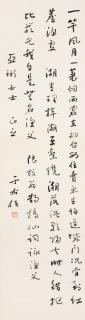 一竿風月一蓑烟雨家在釣台西住賣魚生怕近城門況肯到紅
塵深處 潮生理棹潮平繫纜潮落浩歌歸去時人錯把
比嚴光我自是無名漁父 陸放翁鵲橋仙詞詠漁父
女士正之 于右任